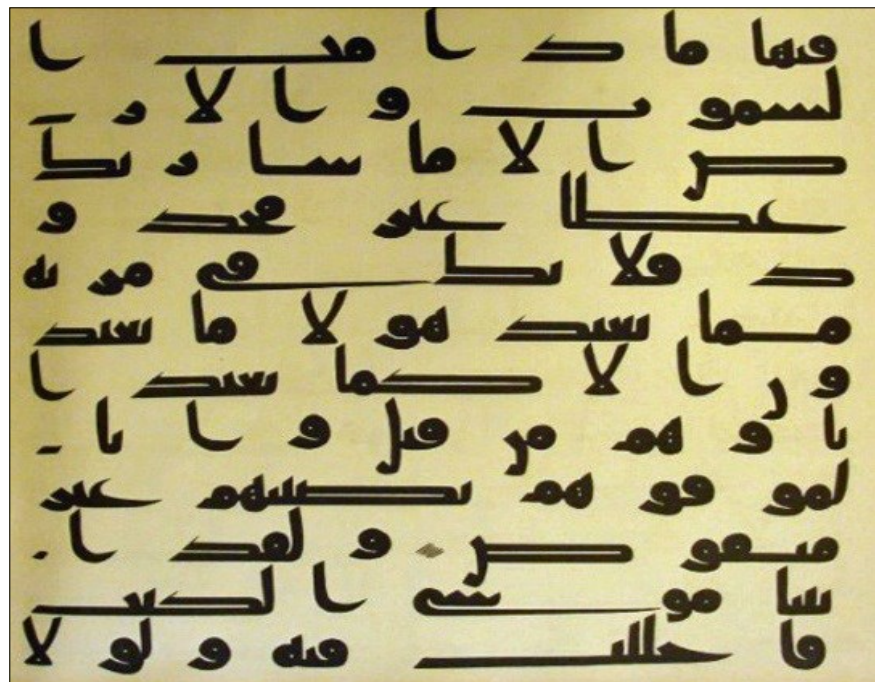 فيها ما دامت ا
لسموت والار
ض الا ما شا ربك
عطا غير مجذو
ذ فلا تك في مريه
مما يعبد هولا ما يعبد
ون الا كما يعبد ا
باوهم من قبل وانا
لموفوهم نصيبهم غير
منقوص ولقد ا
تينا موسى الكتب
فاختلف فيه ولولا